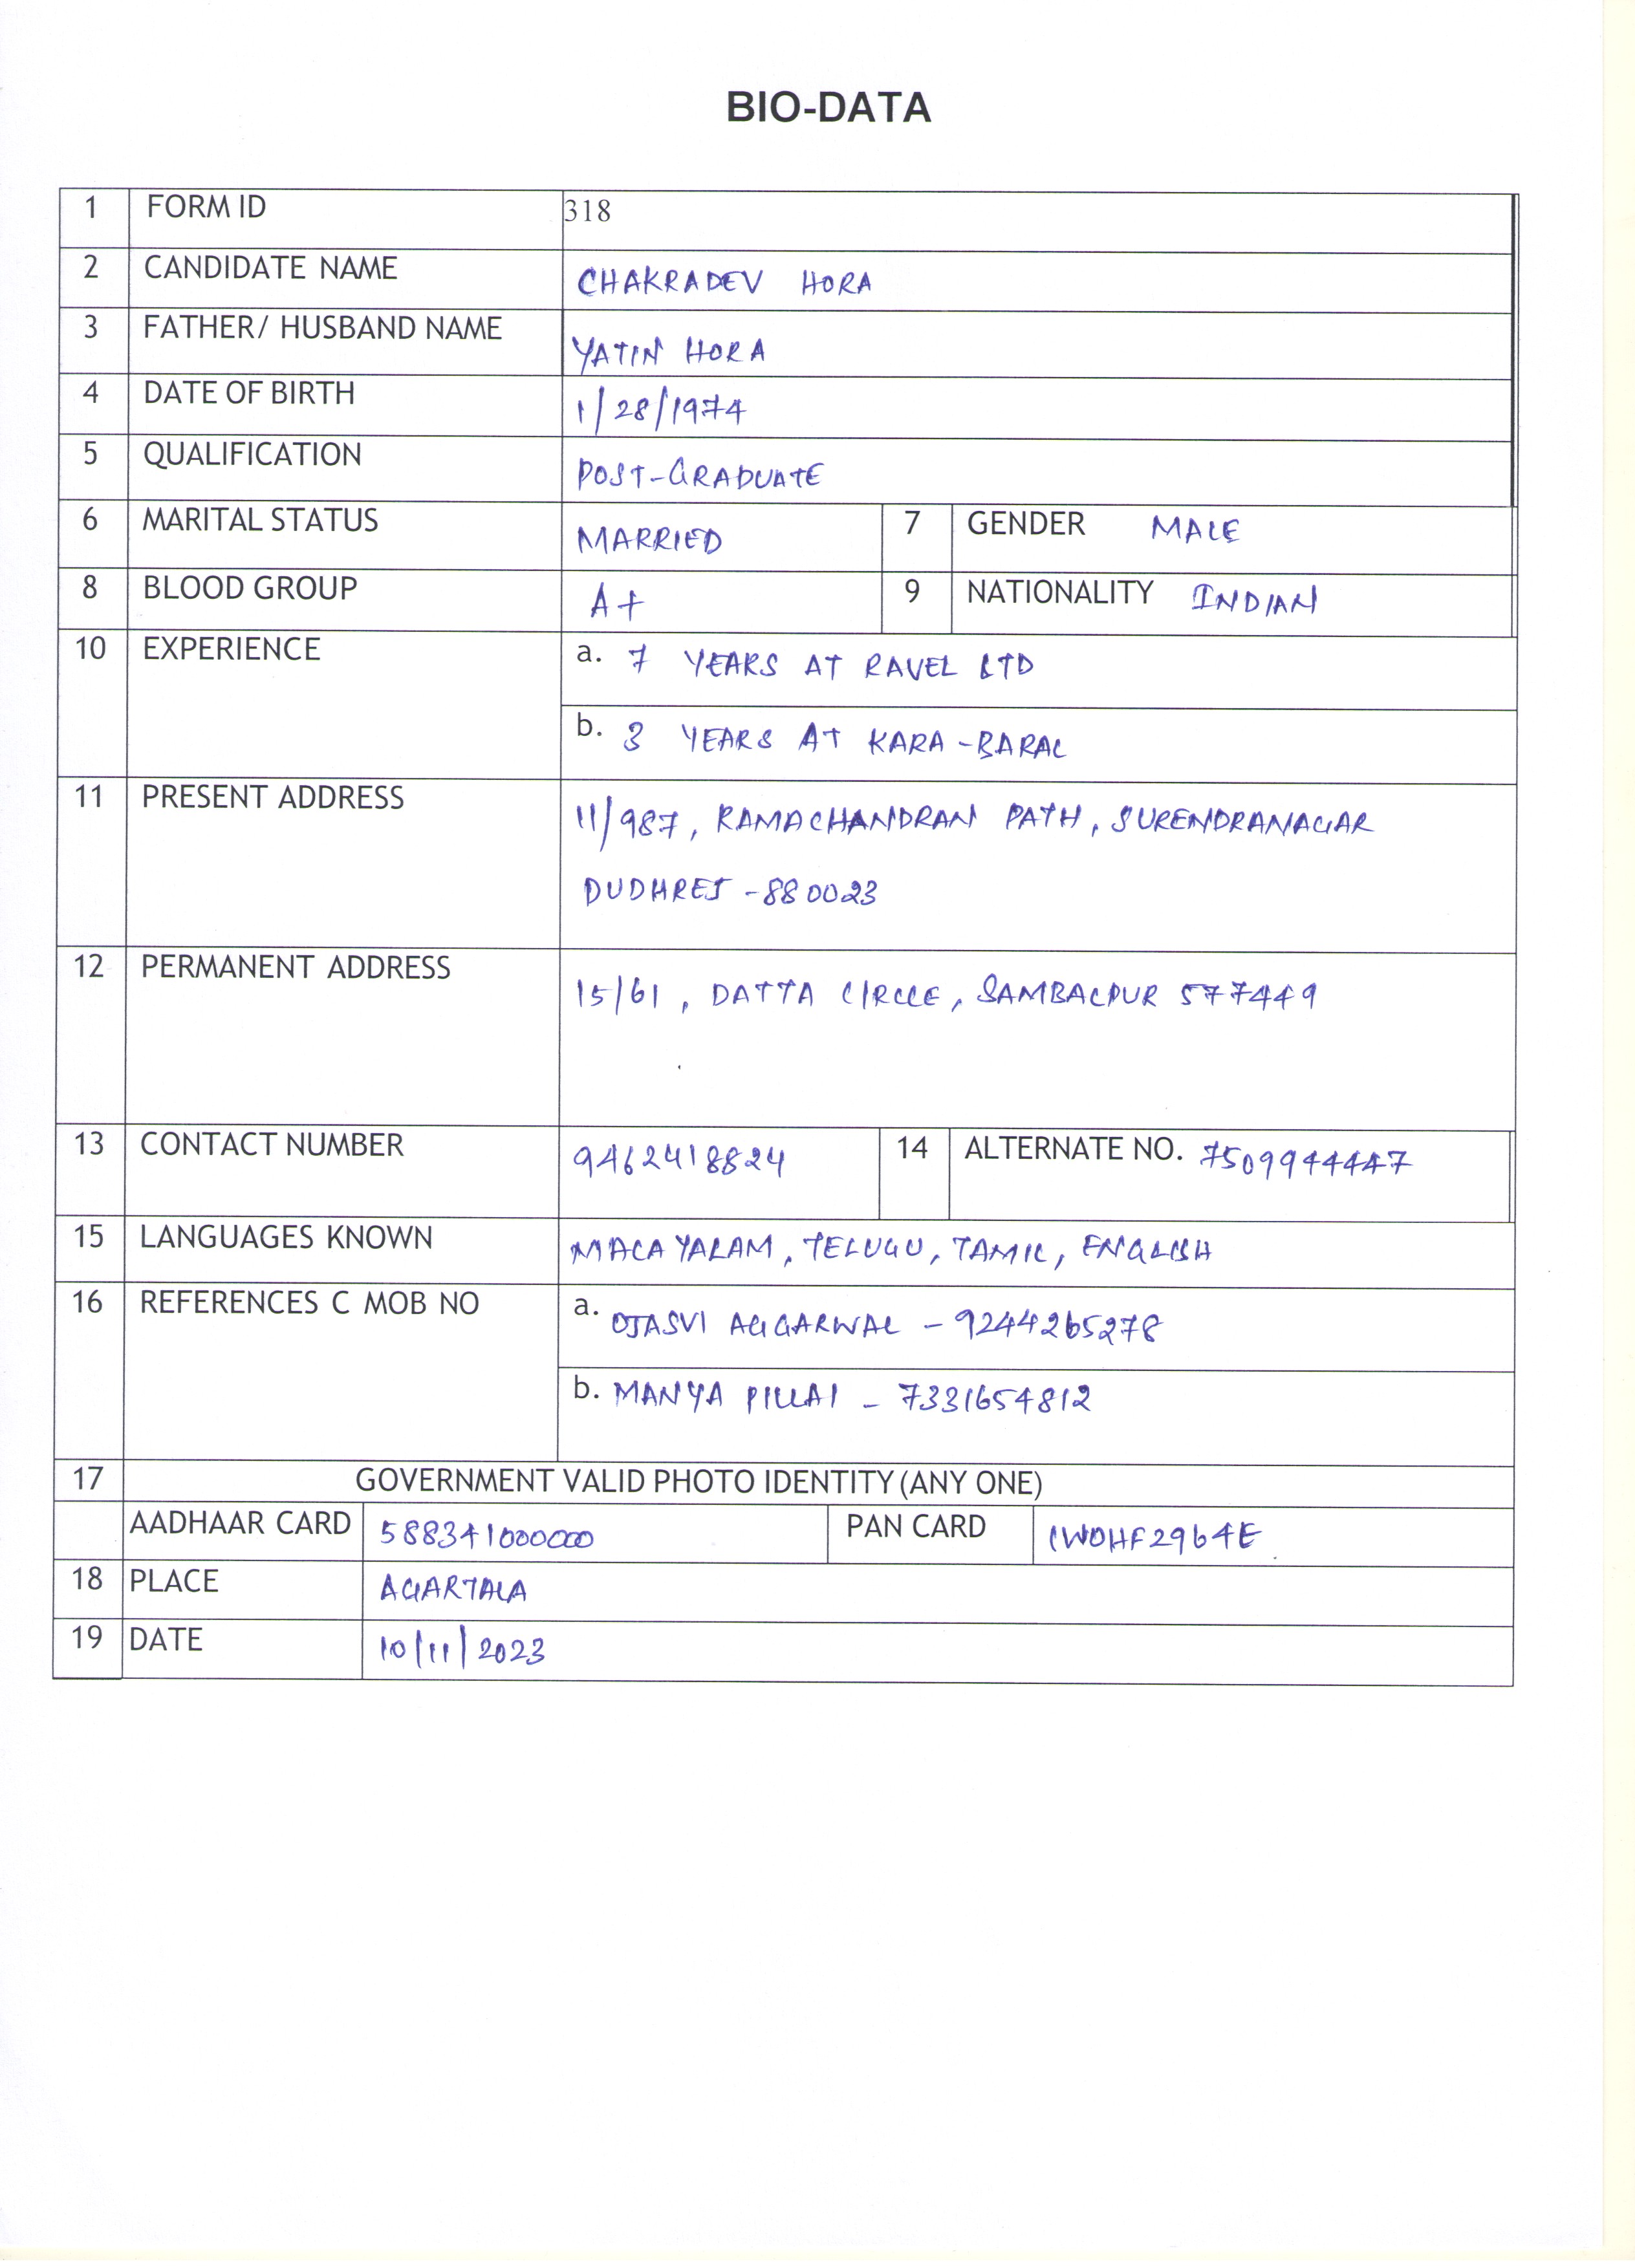 BIO-DATA
1 FORM ID 318
2 CANDIDATE NAME CHAKRADEV HORA
3 FATHER/ HUSBAND NAME YATIN HORA
4 DATE OF BIRTH 1/28/1974
5 QUALIFICATION POST-GRADUATE
6 MARITAL STATUS MARRIED 7 GENDER MALE
8 BLOOD GROUP A+ 9 NATIONALITY INDIAN
10 EXPERIENCE a. 7 YEARS AT RAVEL LTD
b. 3 YEARS AT KARA-BARAL
11 PRESENT ADDRESS 11/987, RAMACHANDRAN PATH, SURENDRANAGAR
DUDHREJ -880023
12 PERMANENT ADDRESS 15/61, DATTA CIRCLE, SAMBALPUR 577449
13 CONTACT NUMBER 9462418824 14 ALTERNATE NO. 7509944447
15 LANGUAGES KNOWN MALAYALAM, TELUGU, TAMIL, ENGLISH
16 REFERENCES C MOB NO a. OJASVI AGGARWAL - 9244265278
b. MANYA PILLAI - 7331654812
17 GOVERNMENT VALID PHOTO IDENTITY (ANY ONE)
AADHAAR CARD 588341000000 PAN CARD IWOHF2964E
18 PLACE AGARTALA
19 DATE 10/11/2023